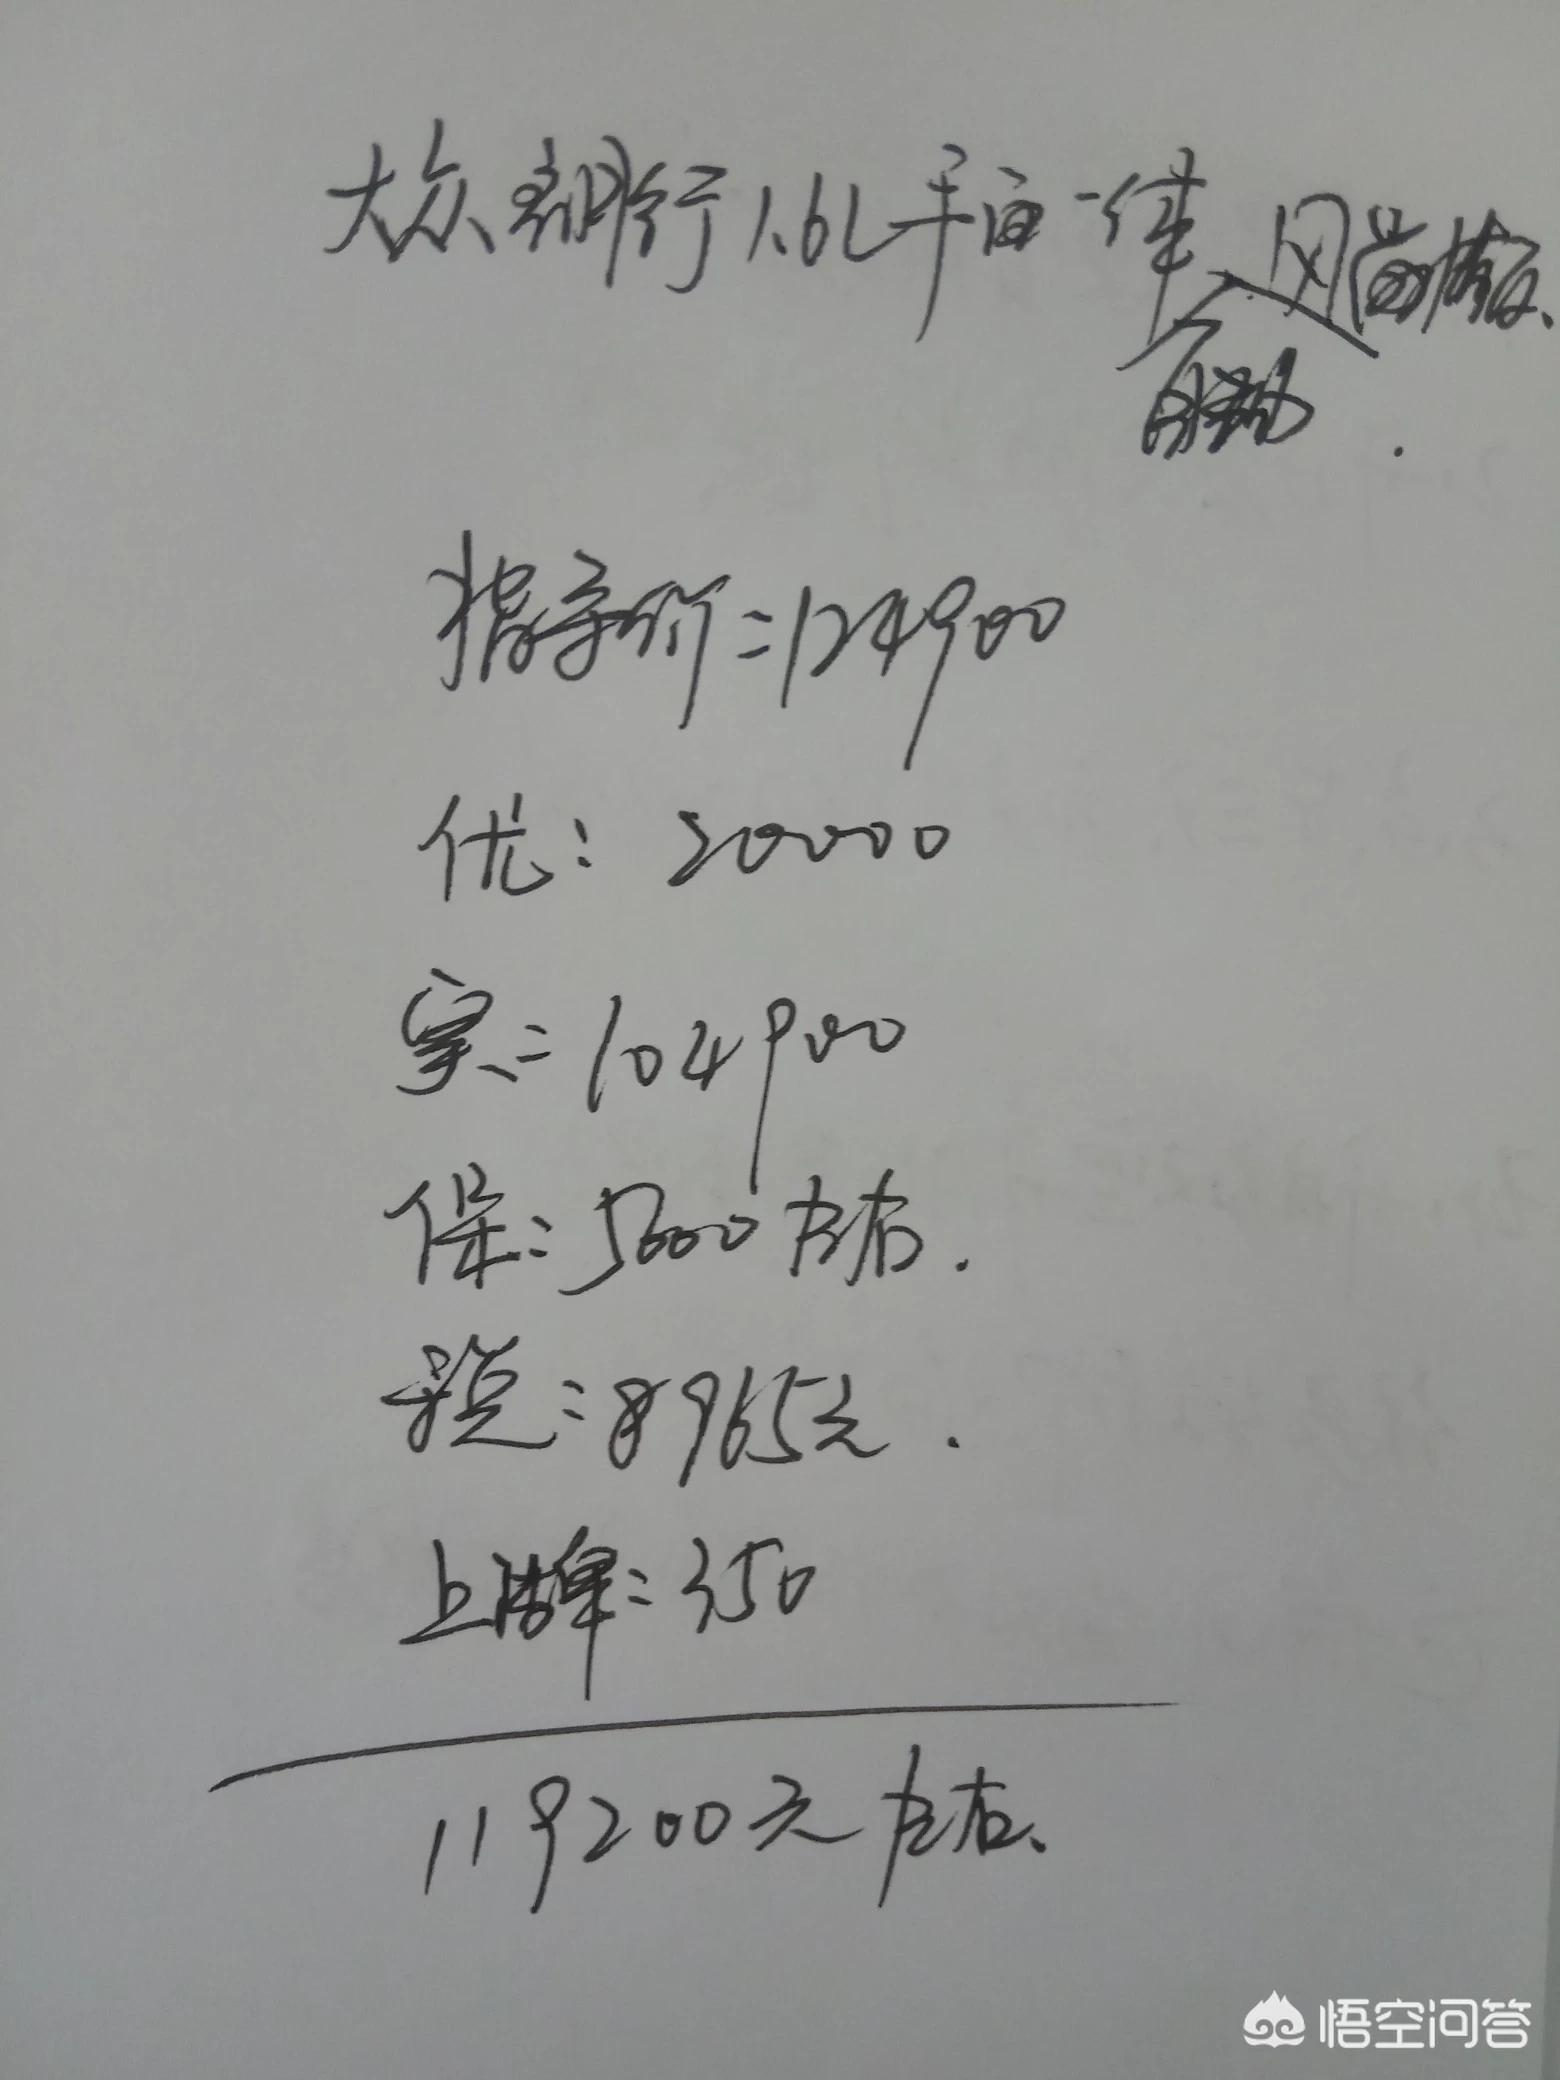 大众朗行1.6L手自一体 风尚
指导价=124900
优：20000
实=104900
保：5000左右.
税：8965元.
上牌=350
119200元左右、
悟空问答